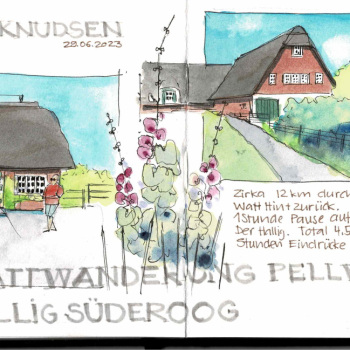 KNUDSEN
28.06.2023
Zirka 12km durch
Watt hin+zurück.
1 Stunde Pause auf
Der Hallig. Total 4.5
Stunden Eindrücke
ATTWANDERUNG PELLW
LLIG SÜDEROOG